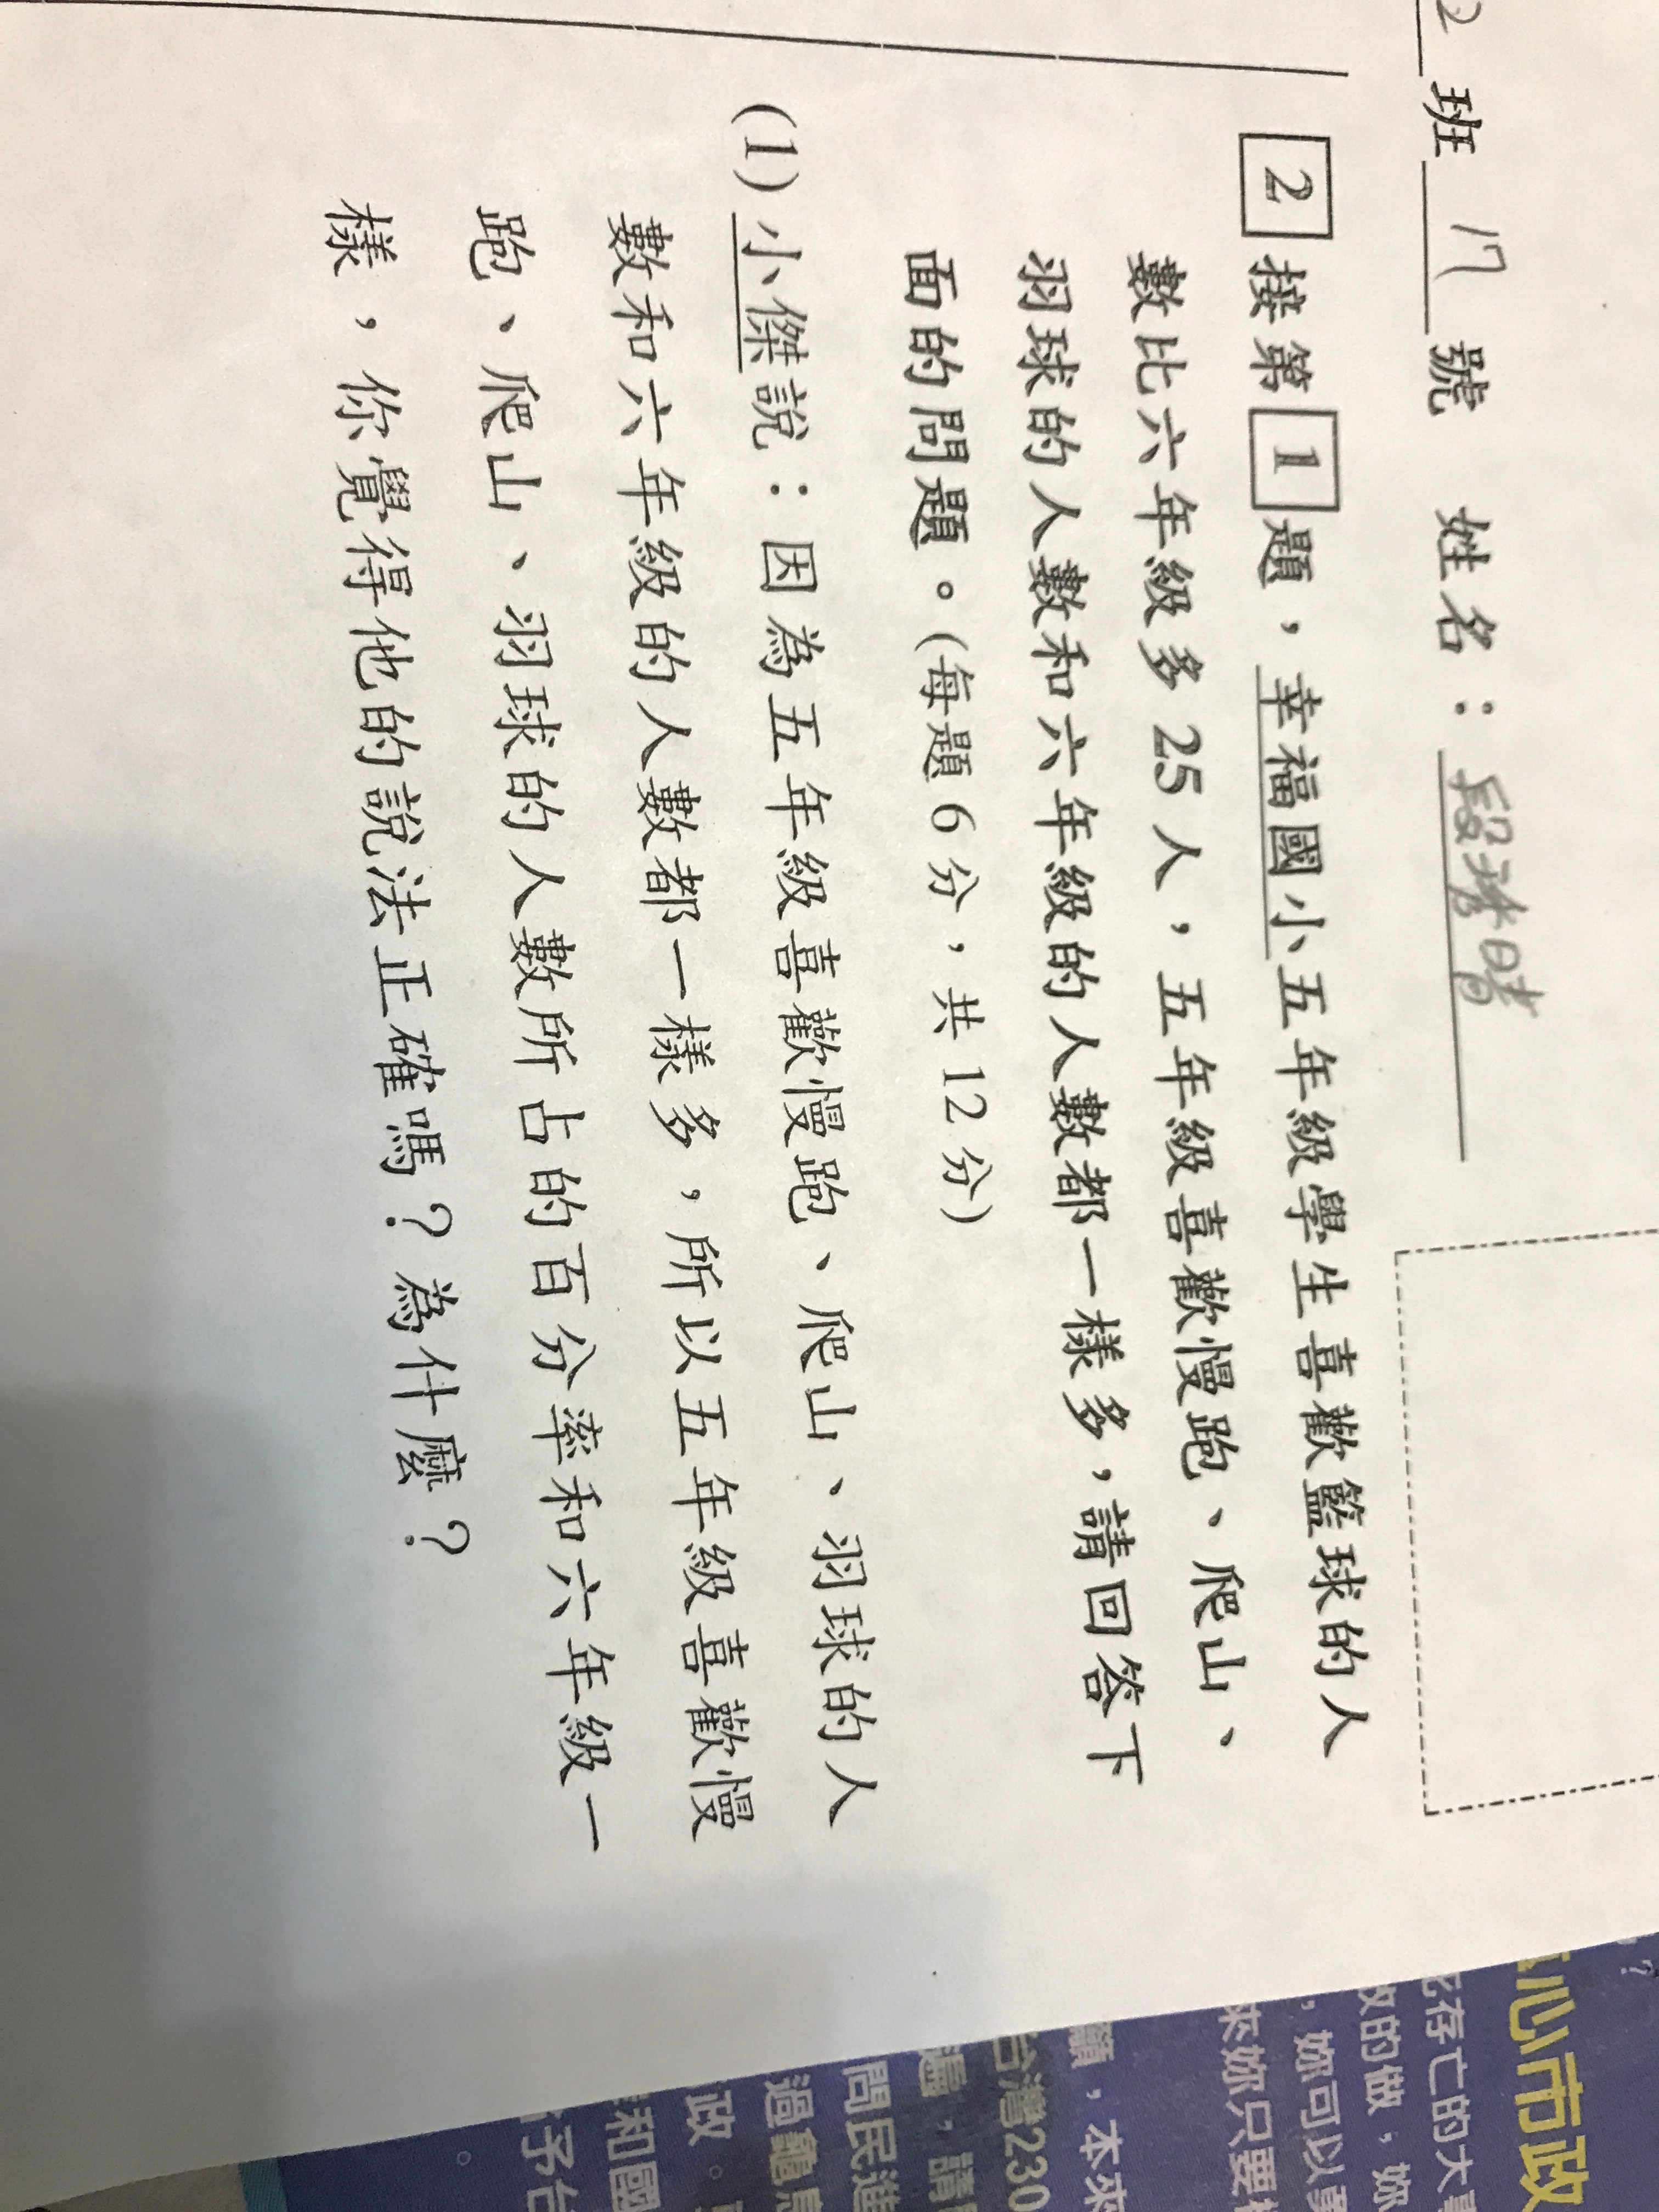 2 班 17 號 姓名：段
2 接第 1 題，幸福國小五年級學生喜歡籃球的人
數比六年級多 25 人，五年級喜歡慢跑、爬山、
羽球的人數和六年級的人數都一樣多，請回答下
面的問題。(每題 6 分，共 12 分)
(1) 小傑說：因為五年級喜歡慢跑、爬山、羽球的人
數和六年級的人數都一樣多，所以五年級喜歡慢
跑、爬山、羽球的人數所占的百分率和六年級一
樣，你覺得他的說法正確嗎？為什麼？
心市政
死存亡的大
的做，妳
，妳可以
來妳只要
願，本來
台灣230
，請
問民進
過
政。
和國
予台